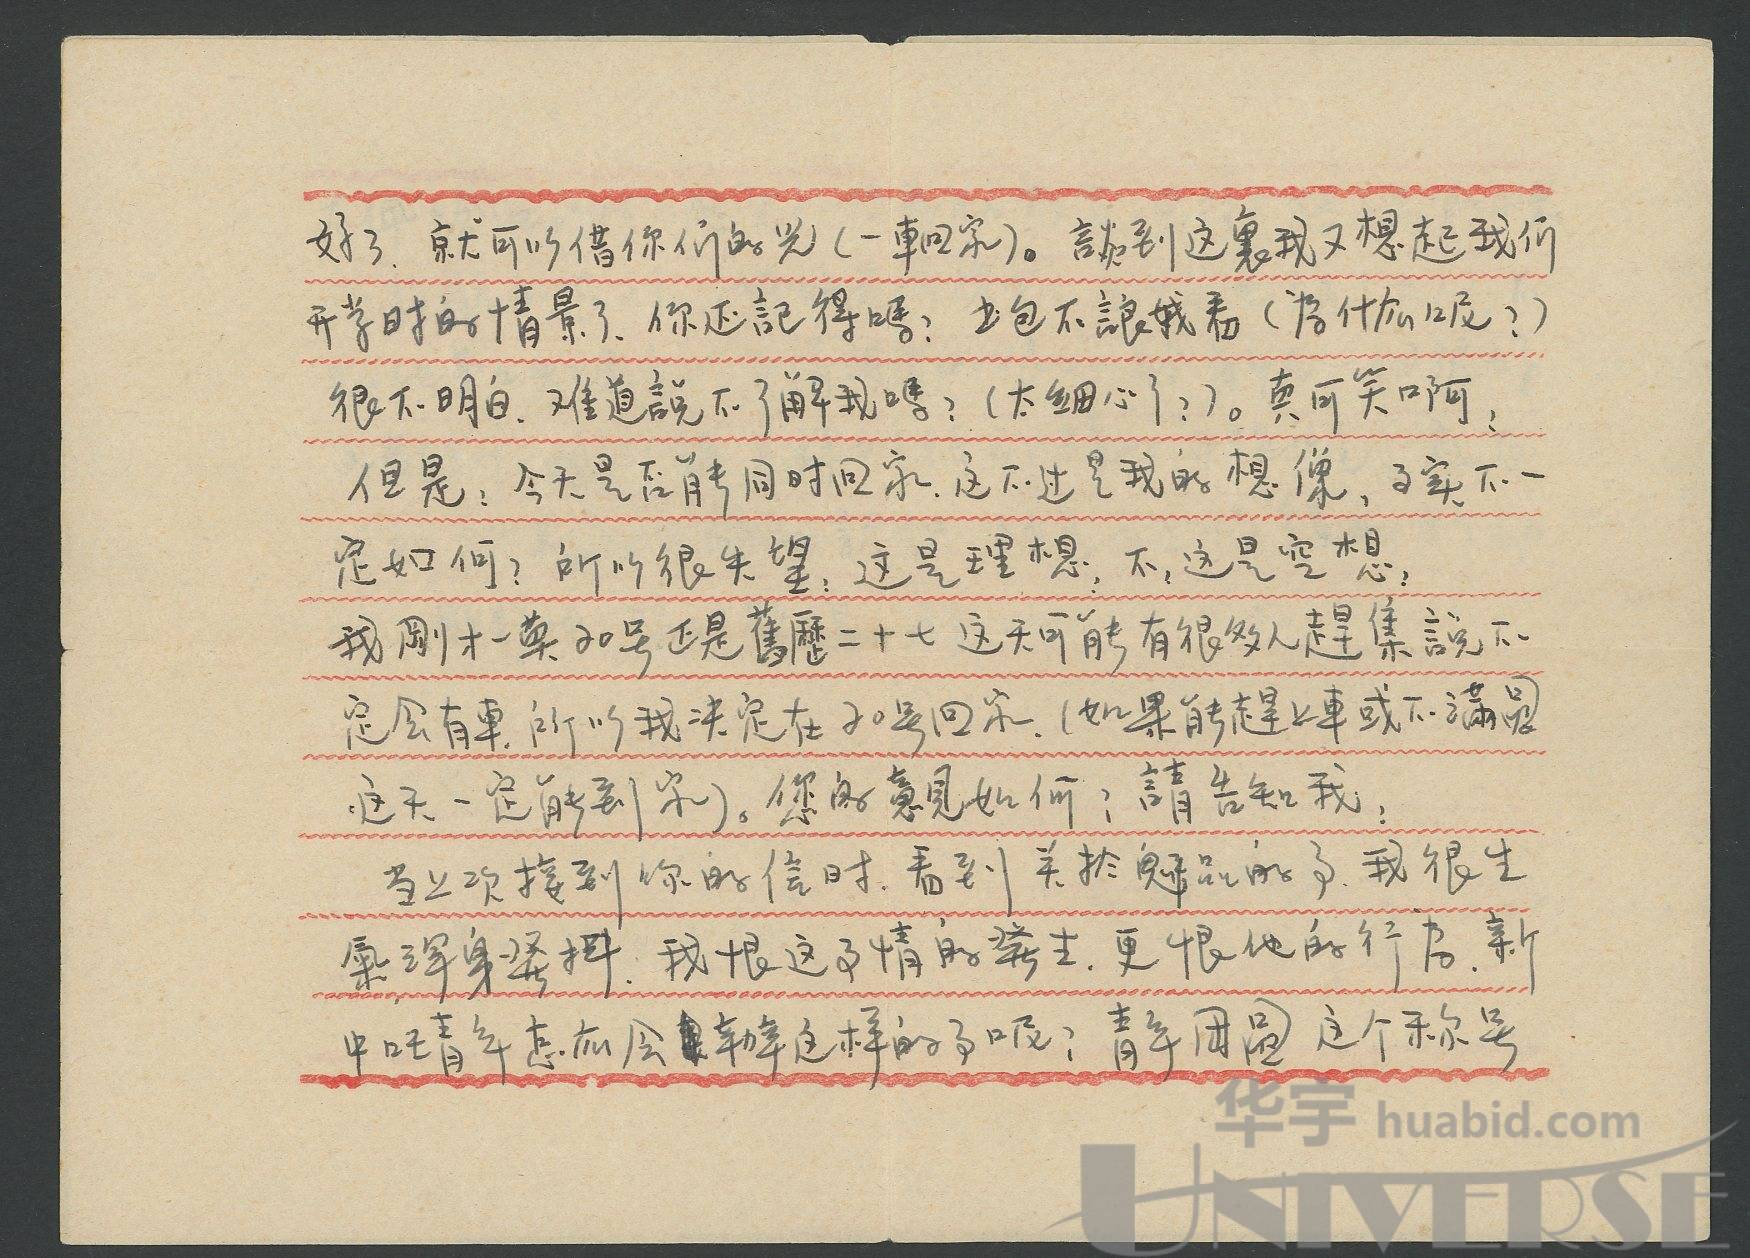 好了、就可以借你们的光(一車回家)。談到这裏我又想起我们
开学时的情景了、你还記得嗎？书包不讓我看(为什么呢？)
很不明白、难道説不了解我嗎？(太細心了？)。真可笑啊，
但是；今天是否能同时回家、这不过是我的想像，事实不一
定如何？所以很失望；这是理想，不，这是空想；
我剛才一算20号正是舊歷二十七这天可能有很多人趕集説不
定会有車、所以我决定在20号回家、(如果能趕上車或不滿员
这天一定能到家)。您的意見如何？請告知我；
当上次接到你的信时、看到关於 品的事、我很生
氣渾身發抖、我恨这事情的發生、更恨他的行为、新
中国青年怎么会 辦这样的事呢？青年团员这个称号
华宇 huabid.com
UNIVERSE